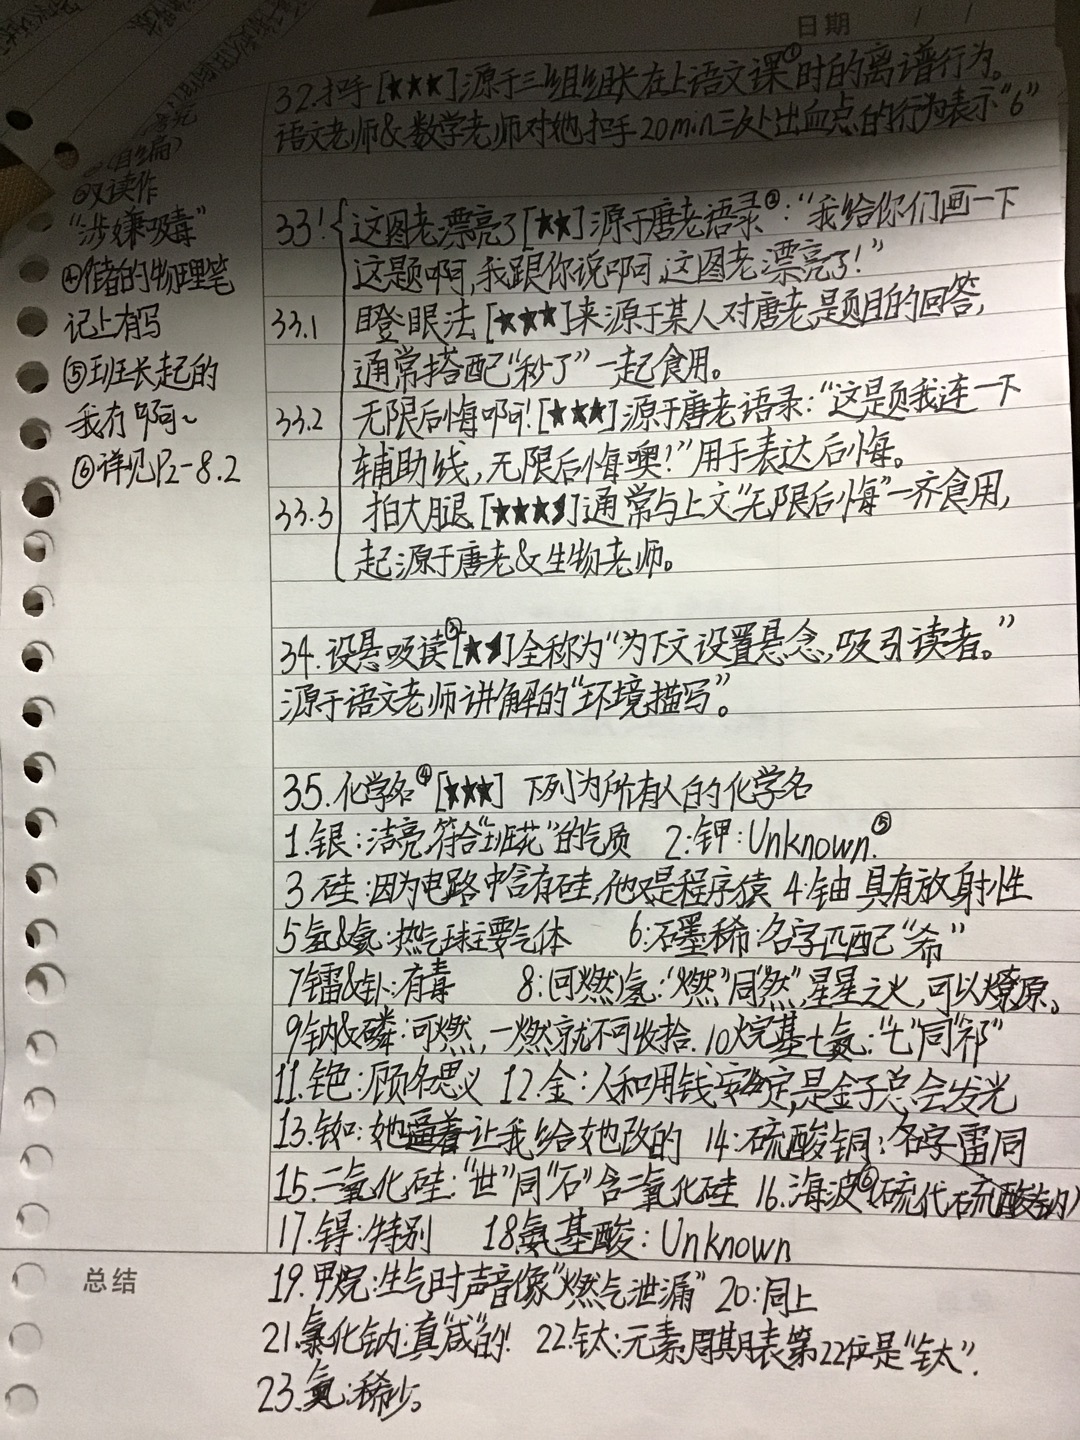 日期
32.扣手[★★★]源于三组组长在上语文课①时的离谱行为。
语文老师&数学老师对她扣手20min三处出血点的行为表示“6”
又读作
“涉嫌吸毒”
④信者的物理笔
记上有写
⑤班长起的
我有啊~
⑥详见P2-8.2
33! 这图老漂亮了[★★]源于唐老语录②:“我给你们画一下
这题啊,我跟你说啊,这图老漂亮了!”
33.1 瞪眼法[★★★]来源于某人对唐老题目的回答,
通常搭配“秒了”一起食用。
33.2 无限后悔啊![★★★]源于唐老语录:“这题我连一下
辅助线,无限后悔噢!”用于表达后悔。
33.3 拍大腿[★★★]通常与上文“无限后悔”一齐食用,
起源于唐老&生物老师。
34.设悬吸读③[★]全称为“为下文设置悬念,吸引读者。”
源于语文老师讲解的“环境描写”。
35.化学名④[★★★] 下列为所有人的化学名
1.银:洁亮.符合“班花”的气质 2:钾:Unknown.⑤
3.硅:因为电路中含有硅,他又是程序猿 4:铀 具有放射性
5氢&氦:热气球主要气体 6:石墨稀:名字匹配“希”
7镭&钋:有毒 8:(可燃)氢:“燃”同“然”,星星之火,可以燎原。
9钠&磷:可燃,一燃就不可收拾. 10烷基七氮:“七”同“祁”
11.铯:顾名思义 12.金:人和用钱安定,是金子总会发光
13.铷:她逼着让我给她改的 14:硫酸铜:名字雷同
15.二氧化硅:“世”同“石”含二氧化硅 16.海波⑥(硫代硫酸钠)
17.锝:特别 18氨基酸:Unknown
总结
19.甲烷:生气时声音像“燃气泄漏” 20:同上
21.氯化钠:真“咸”的! 22.钛:元素周期表第22位是“钛”.
23.氮:稀少。